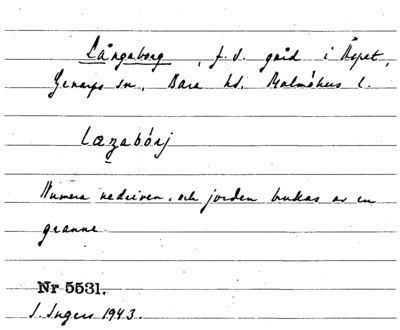 Långaborg, f.d. gård i Äspet,
Genarps sn, Bara hd, Malmöhus l.
Numera nedriven, och jorden brukas av en
granne.
Nr 5531.
I. Ingers 1943.